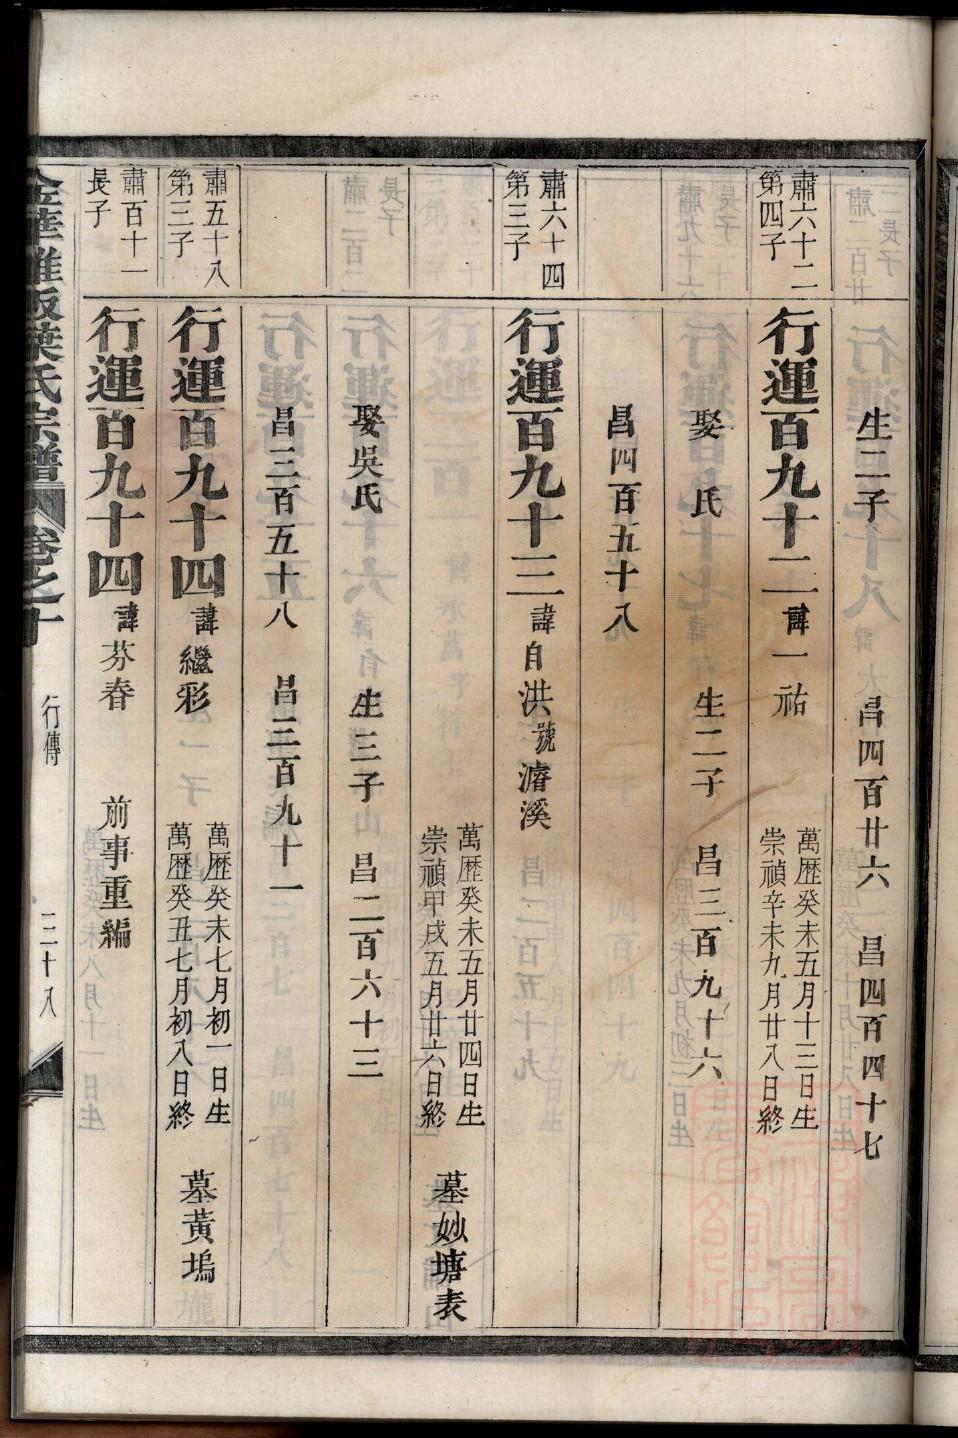 生二子 昌四百廿六 昌四百四十七
肅六十二
第四子
行運百九十二 諱一祐
萬歷癸未五月十三日生
崇禎辛未九月廿八日終
娶 氏 生二子 昌三百九十六
昌四百五十八
肅六十四
第三子
行運百九十三 諱自洪 號濬溪
萬歷癸未五月廿四日生
崇禎甲戌五月廿六日終
墓妙塘表
娶吳氏 生三子 昌二百六十三
昌三百五十八 昌三百九十一
肅五十八
第三子
行運百九十四 諱繼彩
萬歷癸未七月初一日生
萬歷癸丑七月初八日終
墓黃塢
肅百十一
長子
行運百九十四 諱芬春 前事重編
葉氏宗譜 卷之十 行傳 二十八